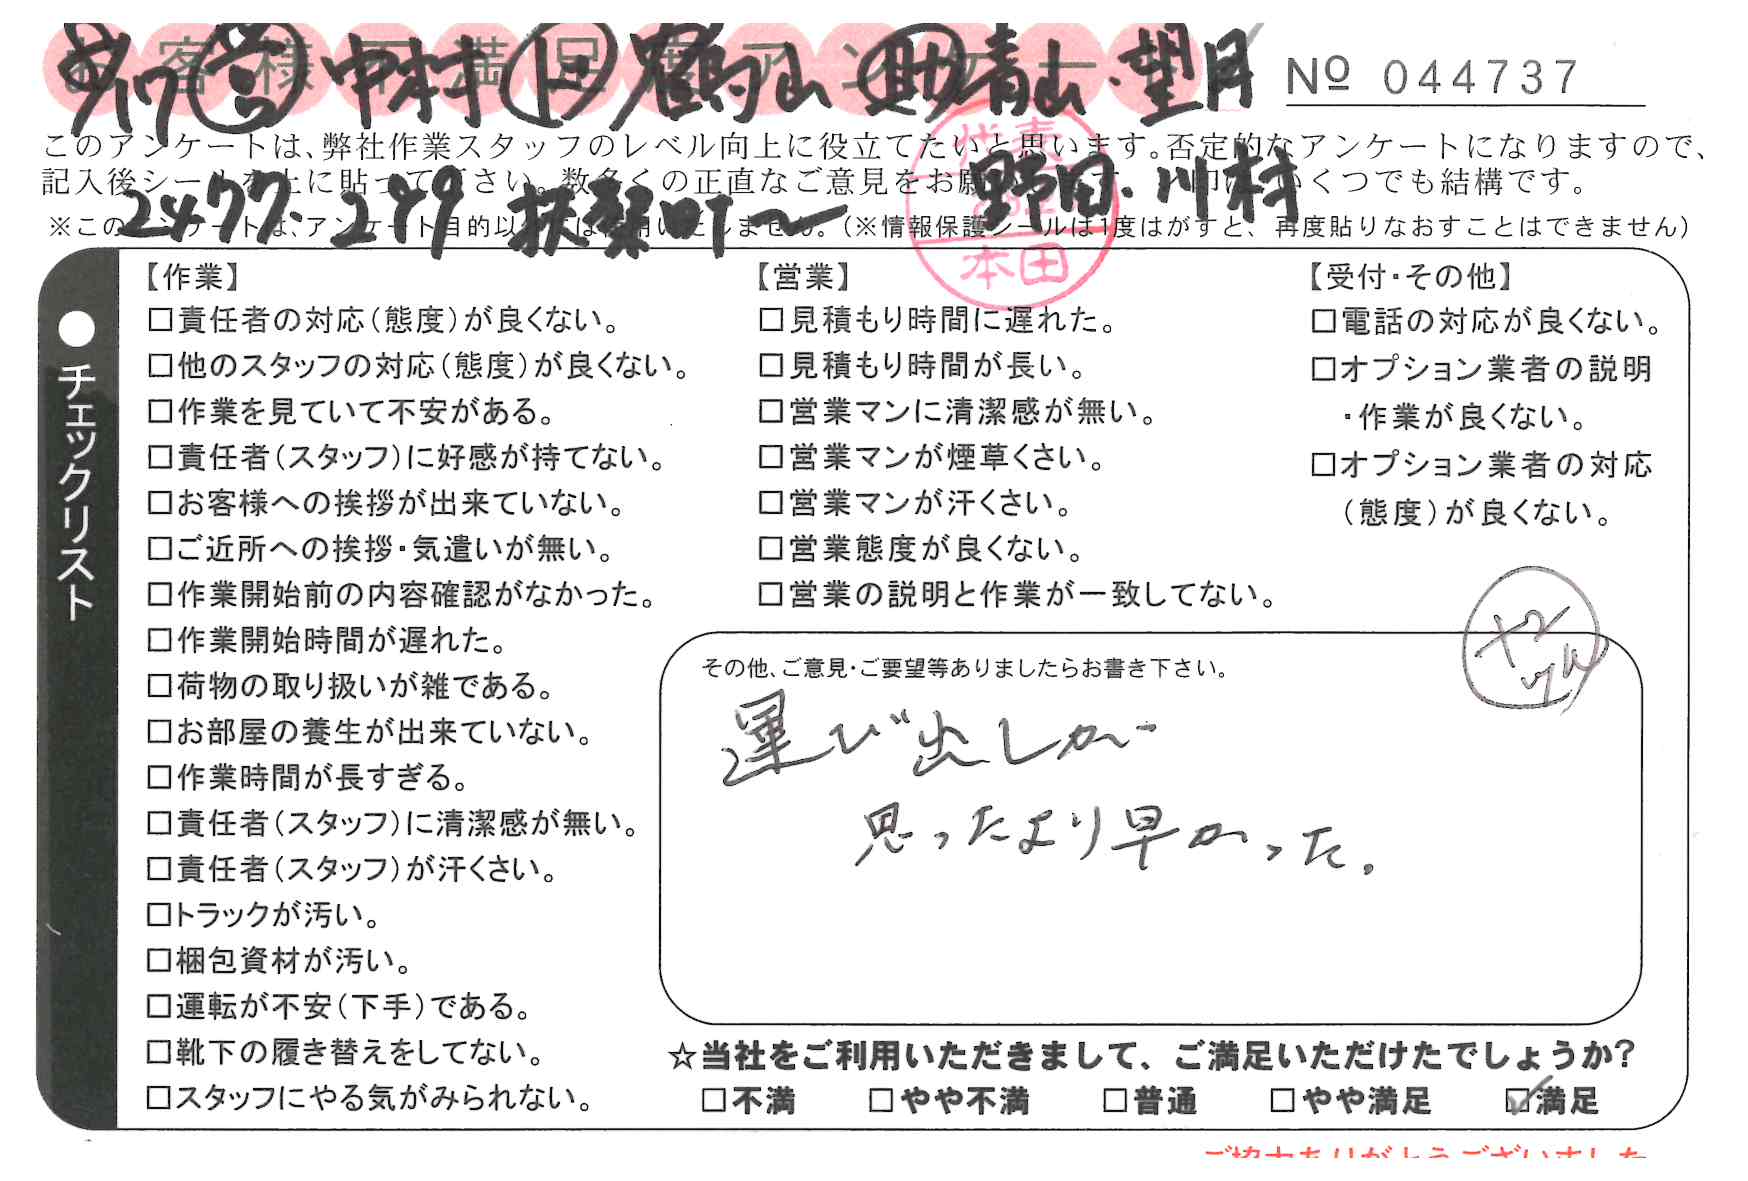 お客様不満足度アンケート
8/17 営 中村 ド 鶴山 助 青山・望月
№ 044737
このアンケートは、弊社作業スタッフのレベル向上に役立てたいと思います。否定的なアンケートになりますので、
野田・川村
記入後シールを上に貼って下さい。数多くの正直なご意見をお願
くつでも結構です。
2477・299 扶桑町〜
※このアンケートは、アンケート目的以外には使用いたしません。(※情報保護シールは1度はがすと、再度貼りなおすことはできません)
代表
本田
●チェックリスト
【作業】
□責任者の対応(態度)が良くない。
□他のスタッフの対応(態度)が良くない。
□作業を見ていて不安がある。
□責任者(スタッフ)に好感が持てない。
□お客様への挨拶が出来ていない。
□ご近所への挨拶・気遣いが無い。
□作業開始前の内容確認がなかった。
□作業開始時間が遅れた。
□荷物の取り扱いが雑である。
□お部屋の養生が出来ていない。
□作業時間が長すぎる。
□責任者(スタッフ)に清潔感が無い。
□責任者(スタッフ)が汗くさい。
□トラックが汚い。
□梱包資材が汚い。
□運転が不安(下手)である。
□靴下の履き替えをしてない。
□スタッフにやる気がみられない。
【営業】
□見積もり時間に遅れた。
□見積もり時間が長い。
□営業マンに清潔感が無い。
□営業マンが煙草くさい。
□営業マンが汗くさい。
□営業態度が良くない。
□営業の説明と作業が一致してない。
【受付・その他】
□電話の対応が良くない。
□オプション業者の説明
・作業が良くない。
□オプション業者の対応
(態度)が良くない。
その他、ご意見・ご要望等ありましたらお書き下さい。
運び出しが
思ったより早かった。
☆当社をご利用いただきまして、ご満足いただけたでしょうか?
□不満 □やや不満 □普通 □やや満足 ☑満足
ご協力ありがとうございました